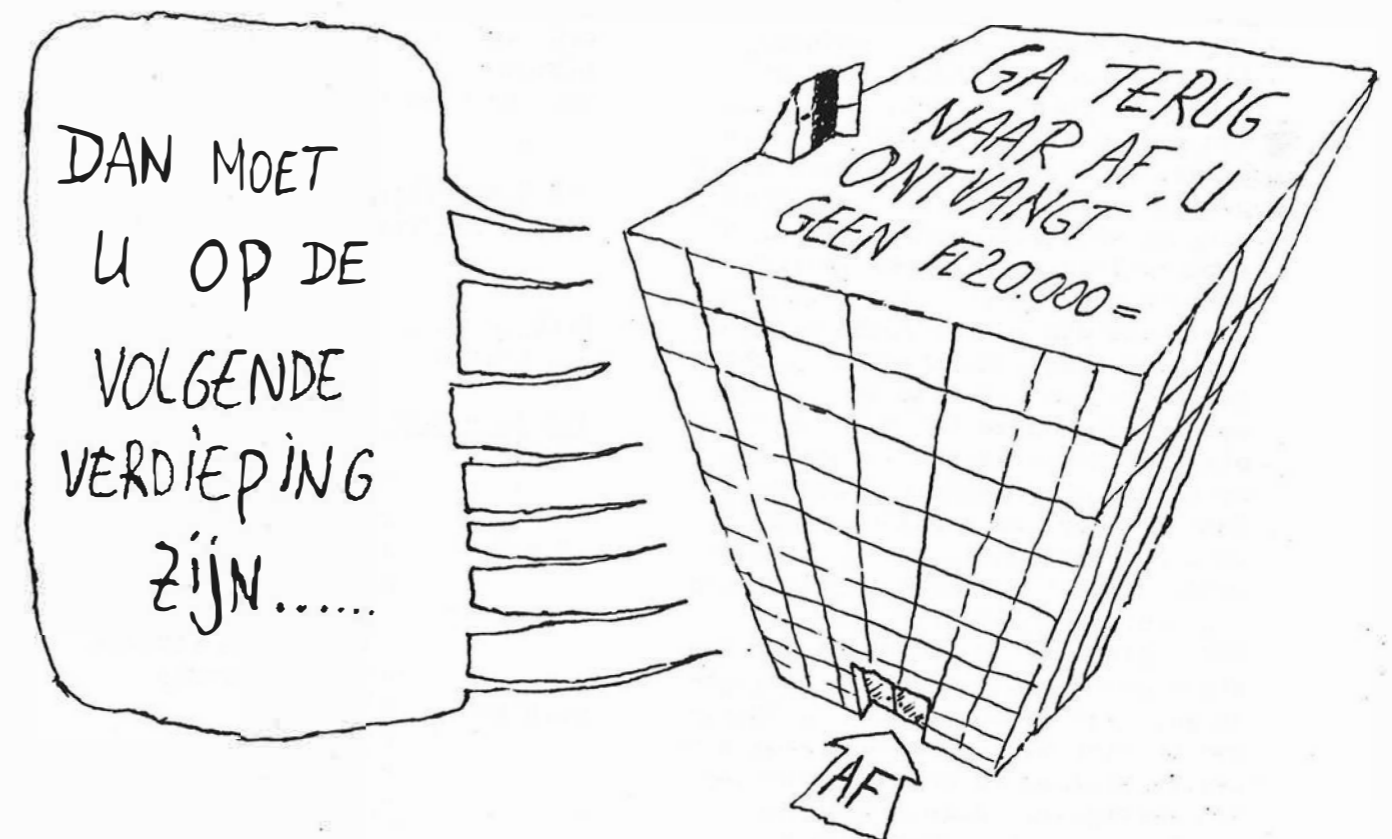 DAN MOET
U OP DE
VOLGENDE
VERDIEPING
ZIJN......
GA TERUG
NAAR AF. U
ONTVANGT
GEEN FL20.000=
AF